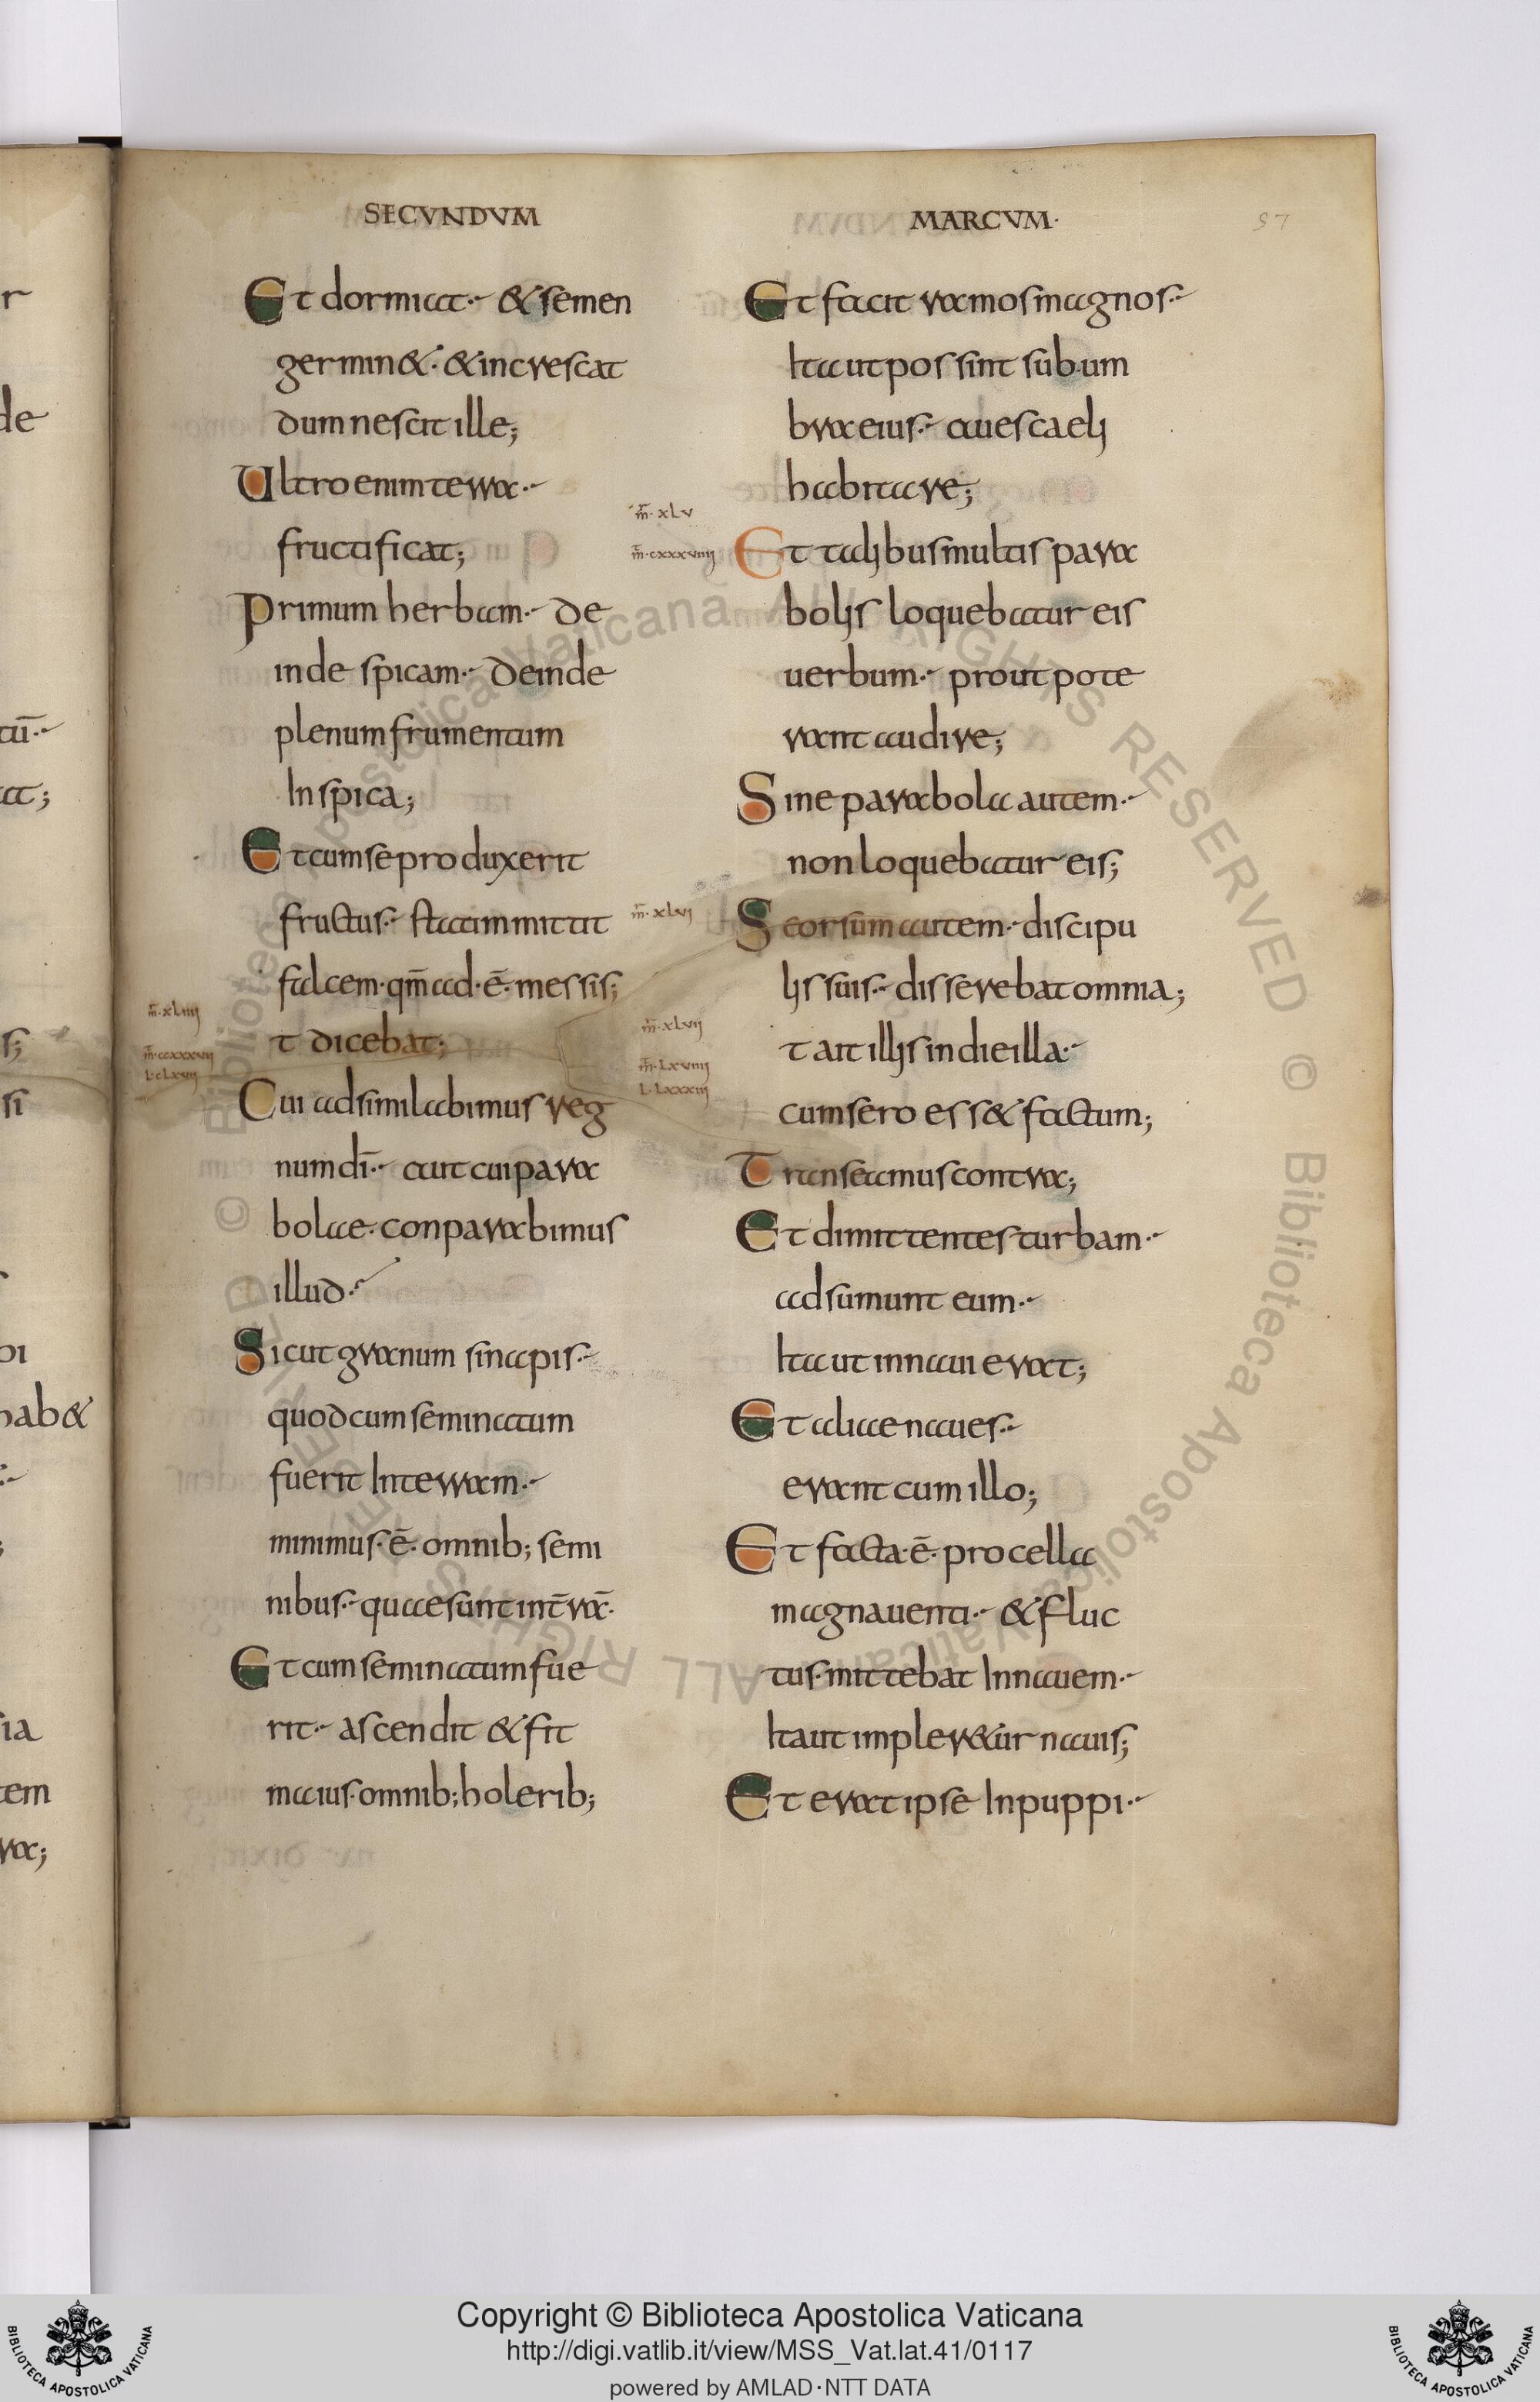 SECVNDVM
Et dormiat. & semen
germin&. & increscat
dum nescit ille;
Ultro enim terra.
fructificat;
Primum herbam. de
inde spicam. deinde
plenum frumentum
In spica;
Et cum se produxerit
fructus. statim mittit
falcem. qm̄ ad. ē. messis;
t dicebat;
Cui adsimilabimus reg
num dī. aut cui para
bolae. conparabimus
illud.
Sicut granum sinapis.
quod cum seminatum
fuerit In terram.
minimus. ē. omnib; semi
nibus. quae sunt int̄rā.
Et cum seminatum fue
rit. ascendit & fit
maius. omnib; holerib;
m̄. xLiiij
m̄. ccxxxvij
L. cLxvij
MARCVM.
97
Et facit ramos magnos.
Ita ut possint sub um
bra eius. aues caeli
habitare;
Et talibus multis para
bolis loquebatur eis
uerbum. prout pote
rant audire;
Sine parabola autem.
non loquebatur eis;
Seorsum autem. discipu
lis suis. disserebat omnia;
t ait illis in die illa.
cum sero ess& factum;
Transeamus contra;
Et dimittentes turbam.
adsumunt eum.
Ita ut in naui erat;
Et aliae naues.
erant cum illo;
Et facta. ē. procella
magna uenti. & fluc
tus. mittebat In nauem.
Ita ut impler&ur nauis;
Et erat ipse In puppi.
m̄. xLv
m̄. cxxxviiij
m̄. xLvj
m̄. xLvij
m̄. Lxviiij
L. Lxxxiij
r
de
tū.
s;
si
hab&
sia
tem
ra;
© Biblioteca Apostolica Vaticana ALL RIGHTS RESERVED
© Biblioteca Apostolica Vaticana ALL RIGHTS RESERVED
BIBLIOTECA APOSTOLICA VATICANA
Copyright © Biblioteca Apostolica Vaticana
http://digi.vatlib.it/view/MSS_Vat.lat.41/0117
powered by AMLAD·NTT DATA
BIBLIOTECA APOSTOLICA VATICANA